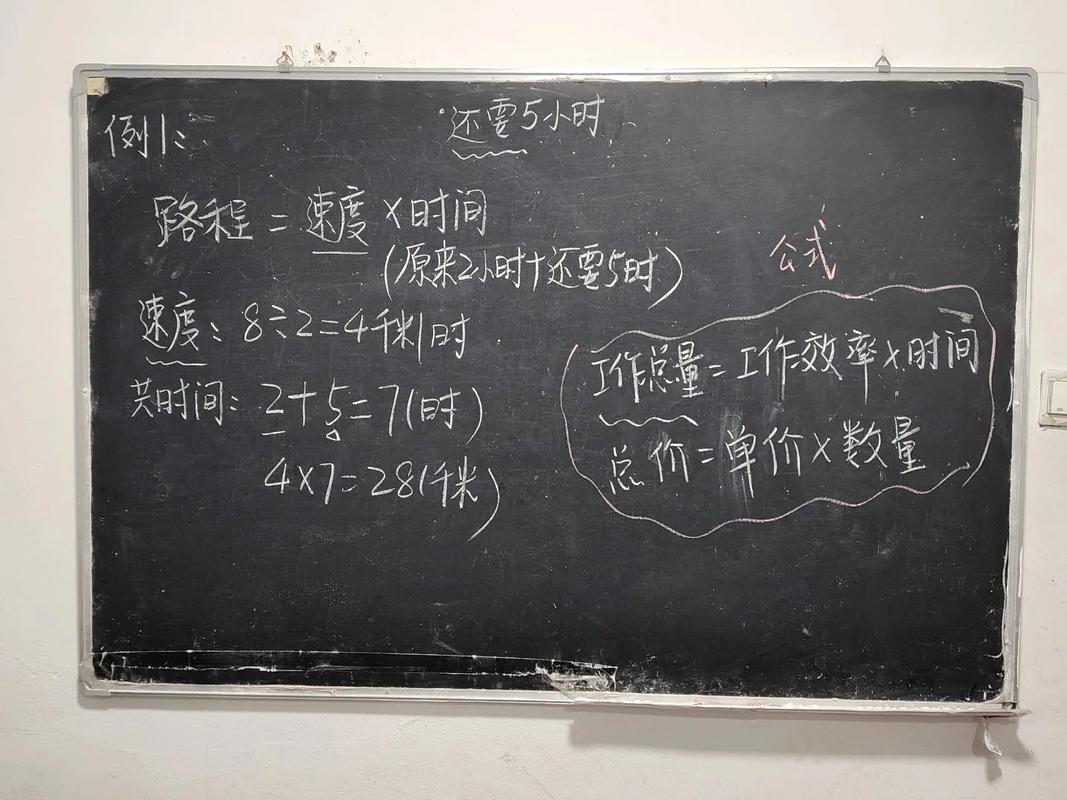 还要5小时
例1:
路程=速度×时间
(原来2小时+还要5时)
速度:8÷2=4千米/时
共时间:2+5=7(时)
4×7=28(千米)
公式
工作总量=工作效率×时间
总价=单价×数量